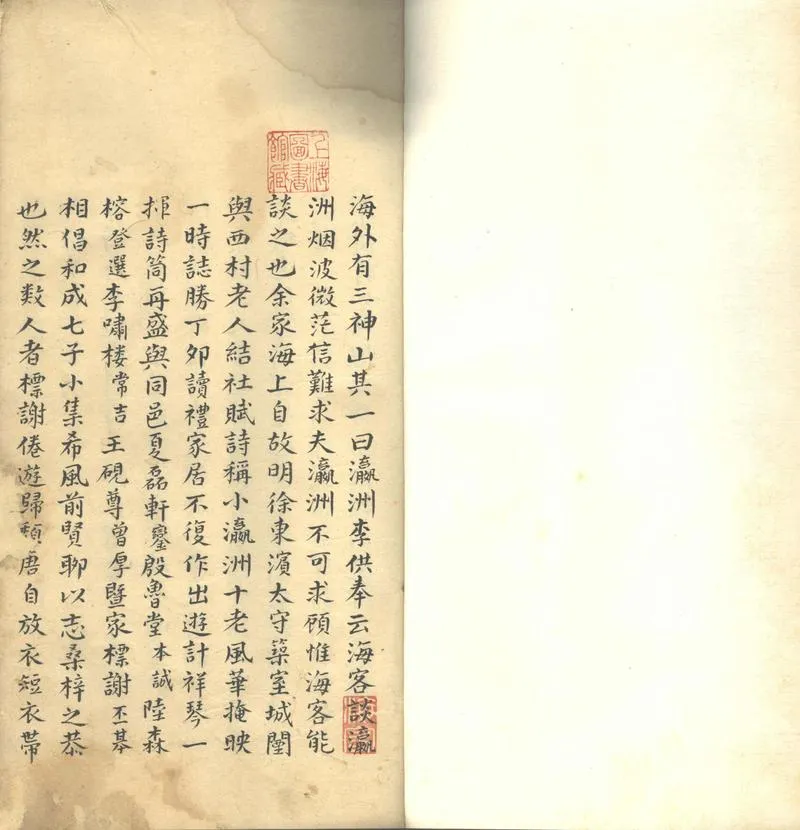 上海圖書館藏
海外有三神山其一曰瀛洲李供奉云海客談瀛
洲烟波微茫信難求夫瀛洲不可求顧惟海客能
談之也余家海上自故明徐東濱太守築室城闉
與西村老人結社賦詩稱小瀛洲十老風華掩映
一時誌勝丁夘讀禮家居不復作出遊計祥琴一
揮詩筒再盛與同邑夏磊軒鑾殷魯堂本誠陸森
榕登選李嘯楼常吉王硯尊曾厚暨家標謝丕基
相倡和成七子小集希風前賢聊以志桑梓之恭
也然之数人者標謝倦遊歸頹唐自放衣短衣帶